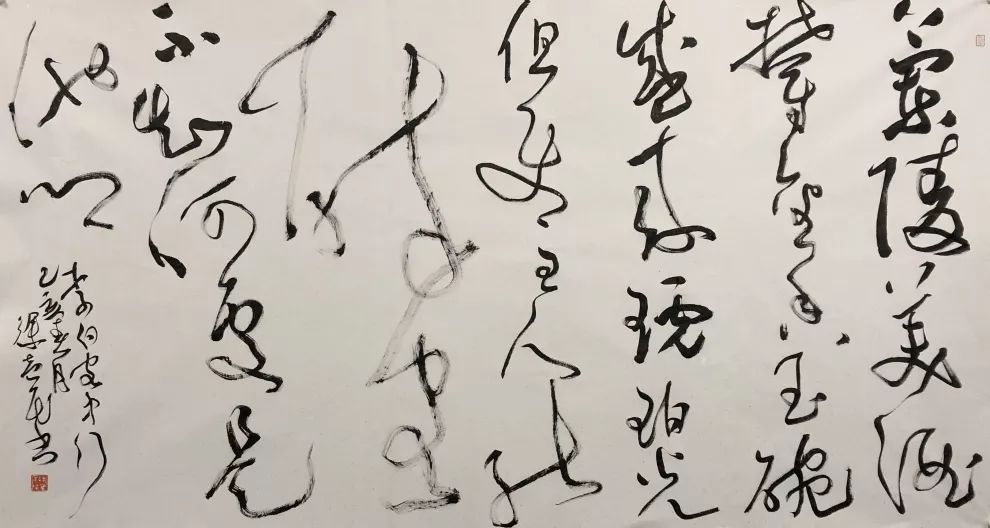 蘭陵美酒
鬱金香玉碗
盛來琥珀光
但使主人能
醉客
不知何處是
他鄉
李白客中行
亥春月
書